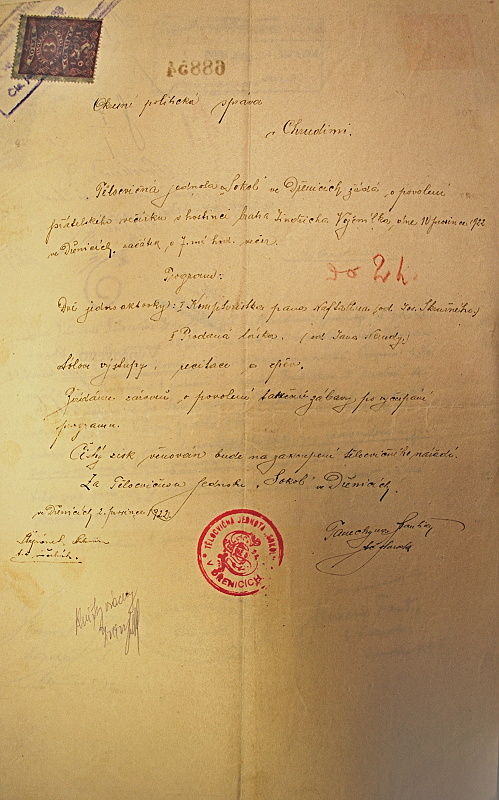 68854
Okresní politická správa
v Chrudimi.
Tělocvičná jednota "Sokol" ve Dřenicích žádá o povolení
přátelského večírku v hostinci bratra Jindřicha dne 10 prosince 1922
ve Dřenicích, začátek o 7. hod. večer.
do 2 h.
Program:
Dvě jednoaktovky: I pana Naftalína, od Jos.
I Prodaná láska, (od Jana Nerudy,)
Solové výstupy, recitace a zpěv.
Žádáme zároveň o povolení taneční zábavy, po vyčerpání
programu.
Čistý zisk věnován bude na zakoupení tělocvičného nářadí.
Za Tělocvičnou Jednotu "Sokol" ve Dřenicích.
v Dřenicích 2. prosince 1922.
TĚLOCVIČNÁ JEDNOTA "SOKOL"
V DŘENICÍCH